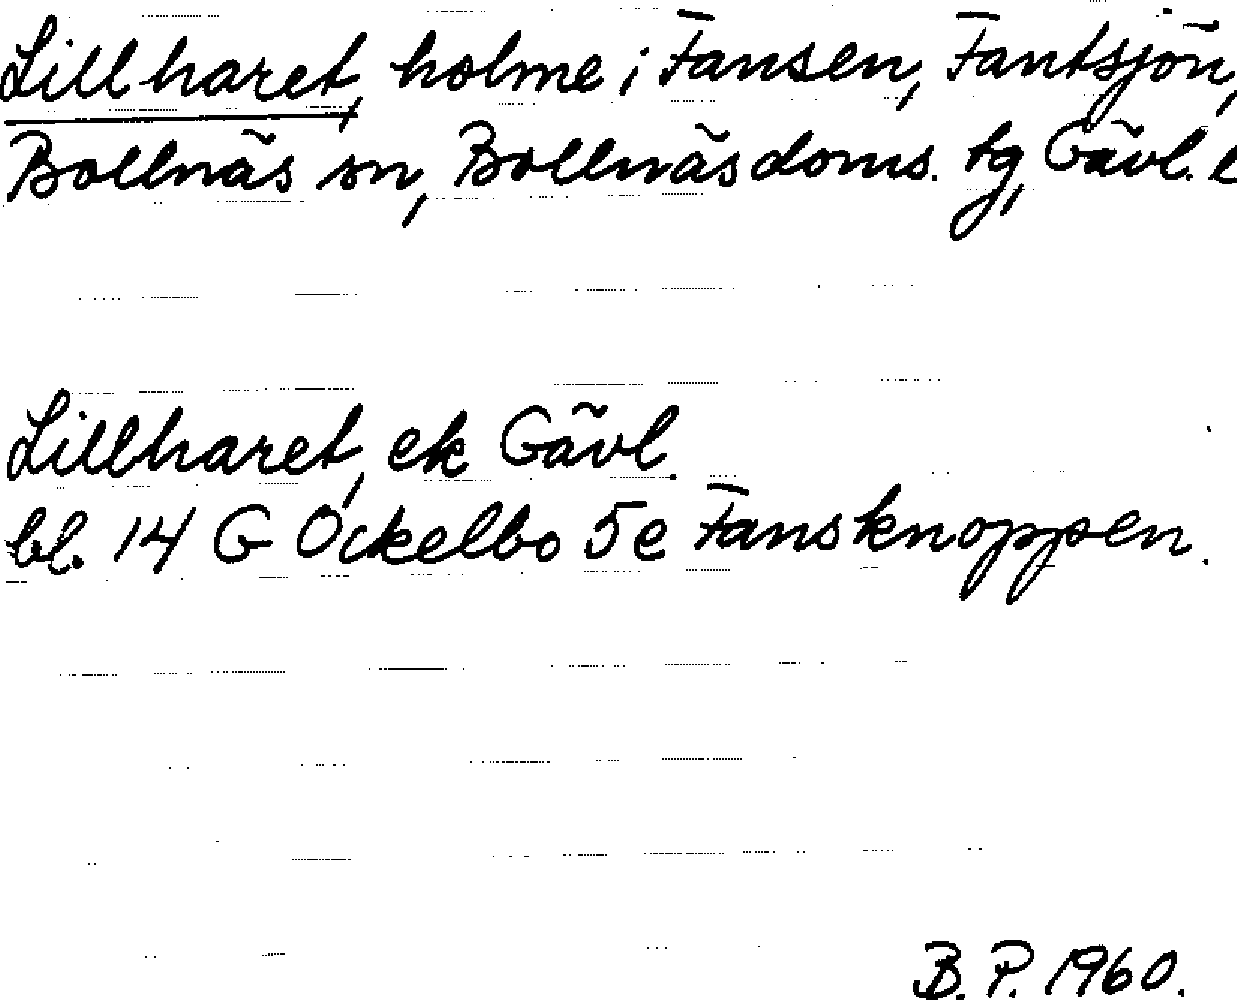 Lillharet, holme i Fansen, Fantsjön,
Bollnäs sn, Bollnäs doms. tg, Gävl. l
Lillharet, ek Gävl.
bl. 14 G Ockelbo 5e Fansknoppen.
B. P. 1960.